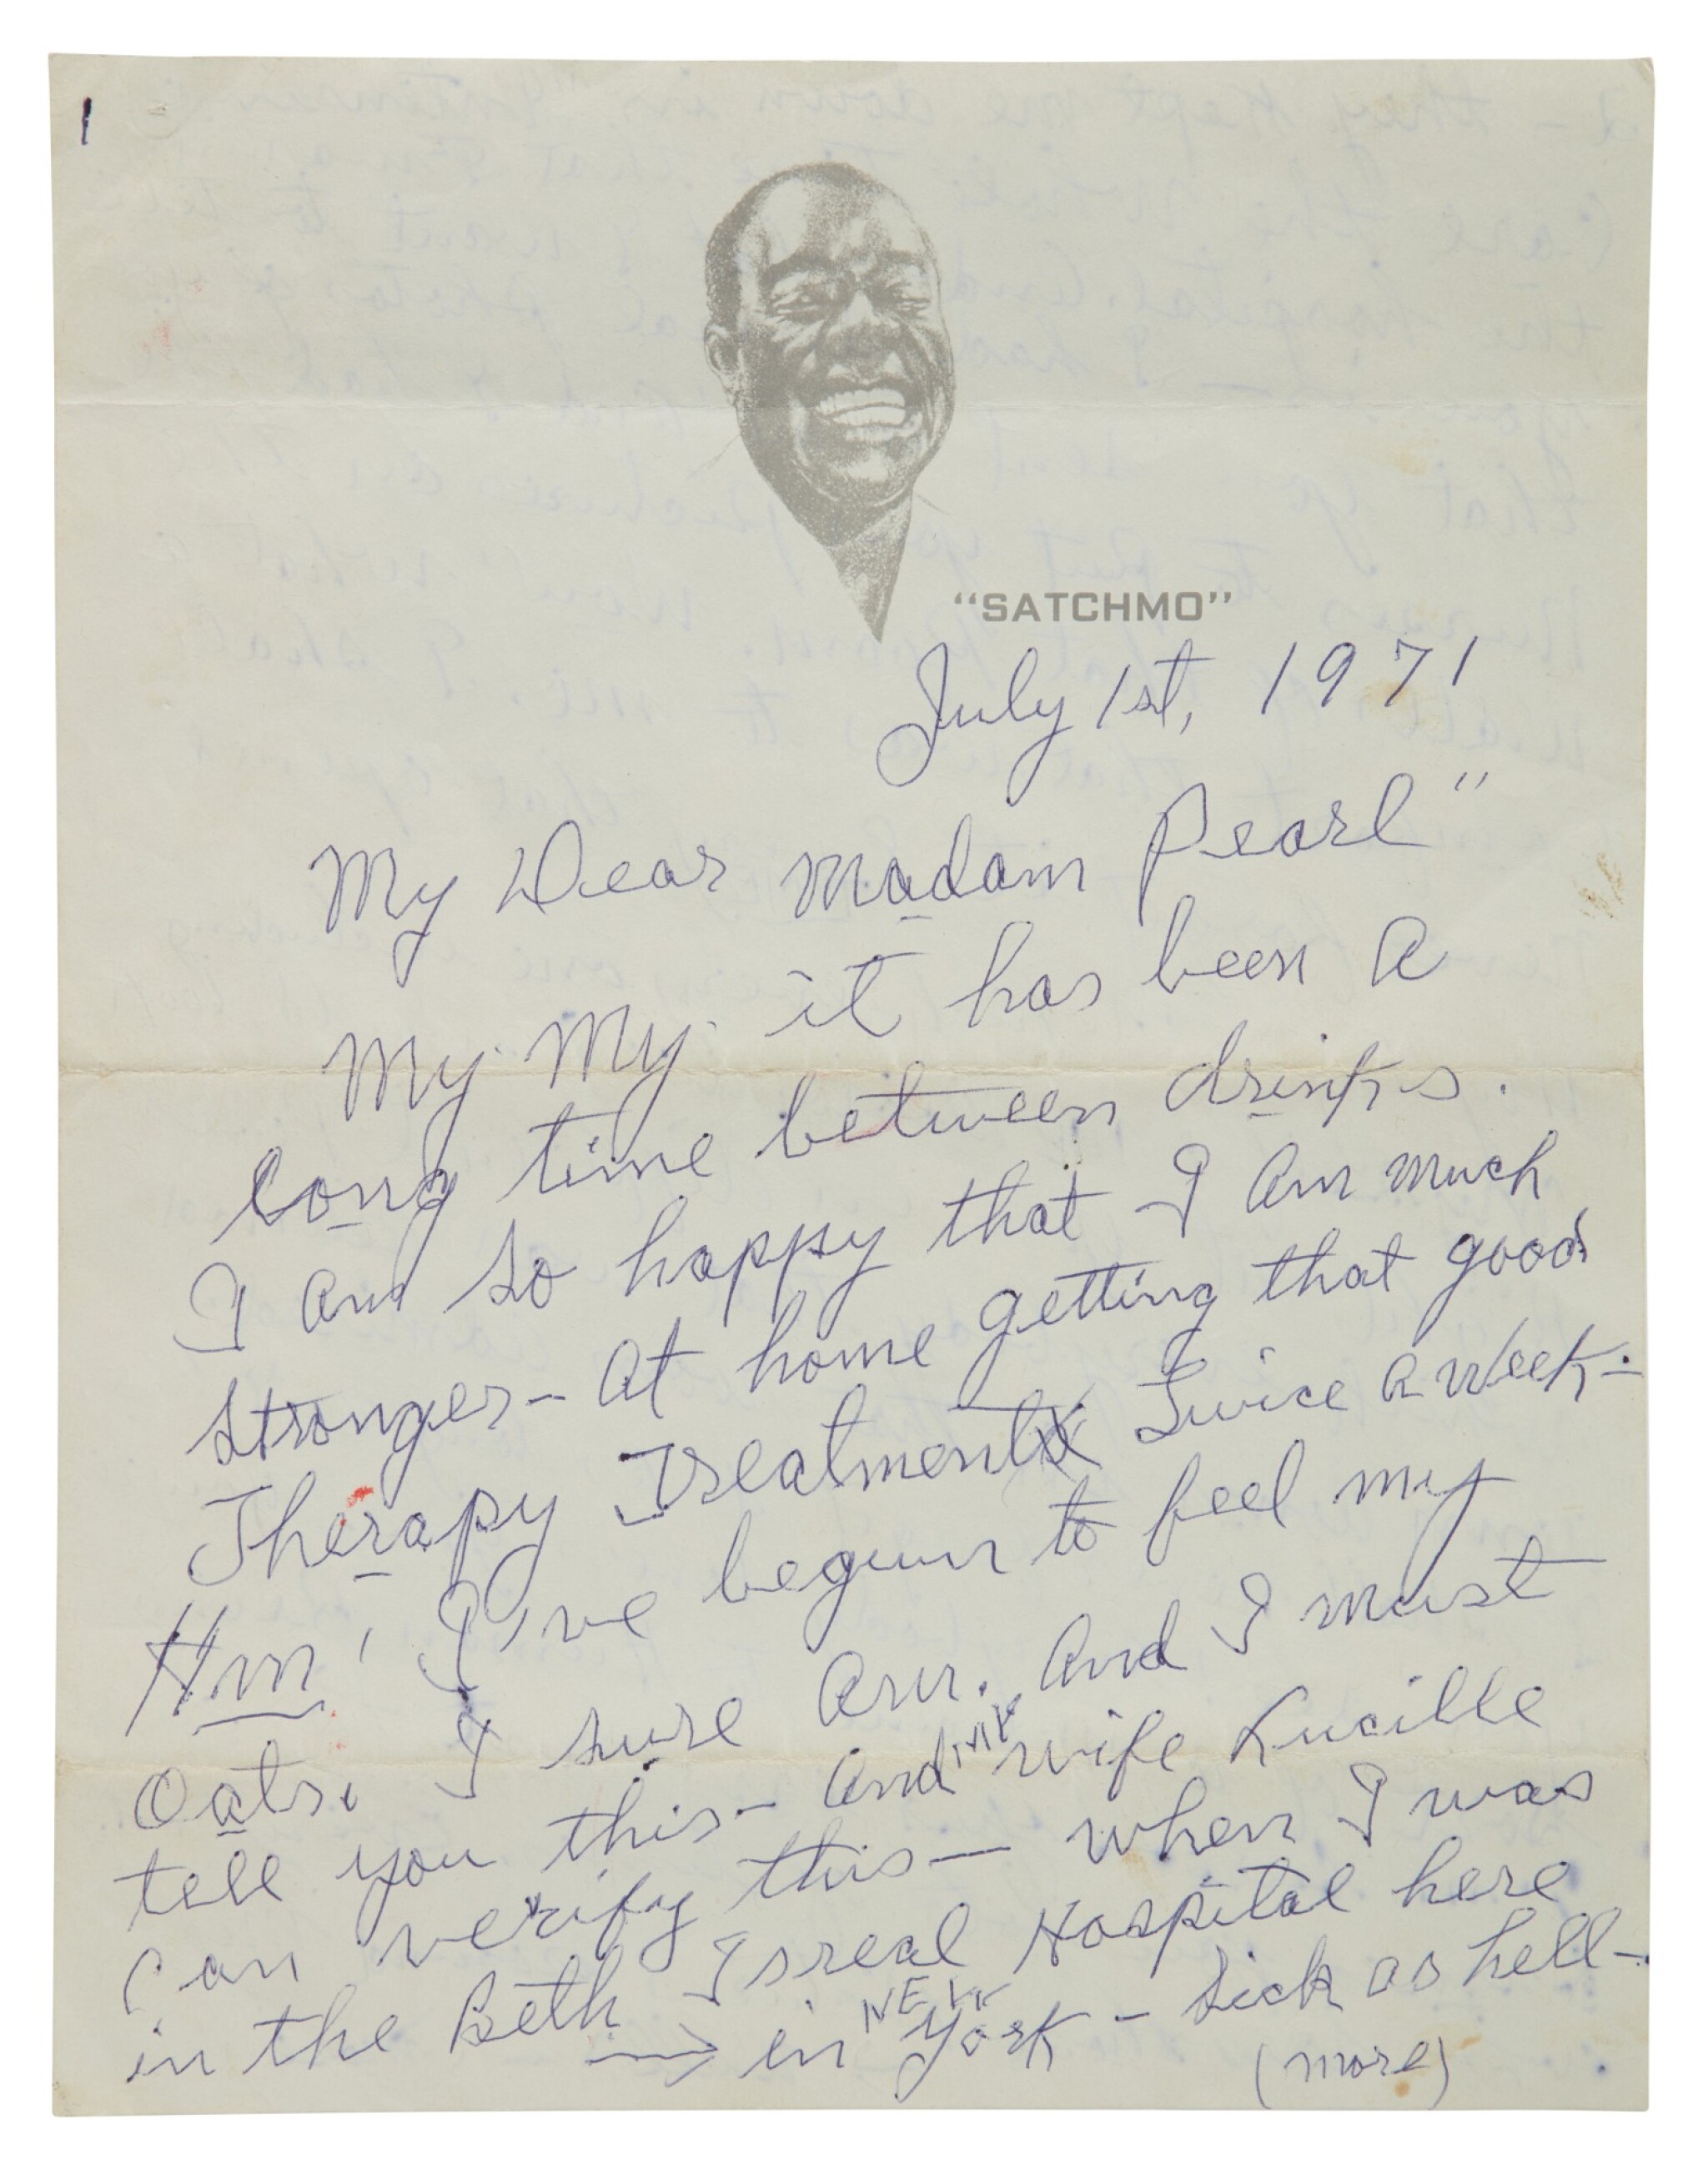 1
"SATCHMO"
July 1st, 1971
My Dear Madam Pearl"
My. My. it has been A
long time between drinks.
I am so happy that I Am much
stronger - At home getting that good
Therapy Treatment Twice A Week -
Hm! I've begun to feel my
Oats. I sure Am. And I must
tell you this - And MY wife Lucille
Can verify this - when I was
in the Beth Isreal Hospital here
→ in NEW York - Sick as hell -
(more)